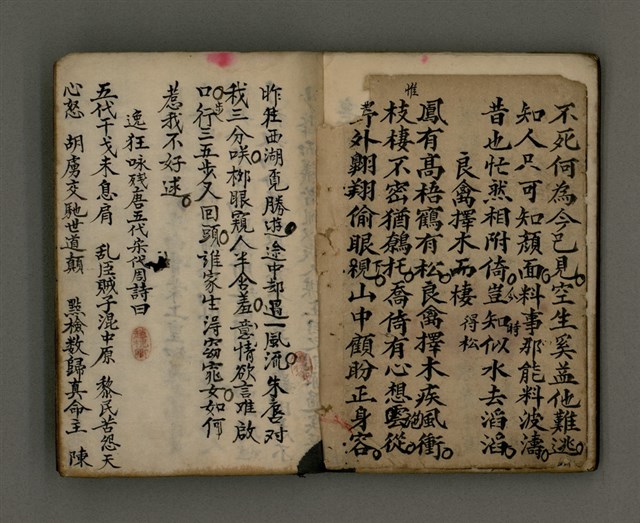 不死何為今已見空生奚益他難逃
知人只可知顏面料事那能料波濤
昔也忙然相附倚豈知似水去滔滔
良禽擇木而棲 得松
惟
鳳有高梧鶴有松良禽擇木疾風衝
枝棲不密猶鷄托喬倚有心想從
外翺翔偷眼視山中顧盼正身容
昨往西湖覓勝遊途中却遇一風流朱唇对
我三分咲柳眼窺人半含羞意情欲言难啟
口行三五步又回頭誰家生淂窈窕女如何
惹我不好逑
逸狂咏殘唐五代宋代周詩曰
五代干戈未息肩 乱臣賊子混中原 黎民苦怨天
心怒 胡虜交馳世道顛 點檢数歸真命主 陳